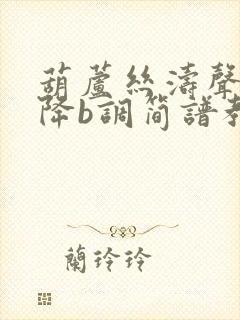 葫蘆絲濤聲
降b調簡譜
蘭玲玲